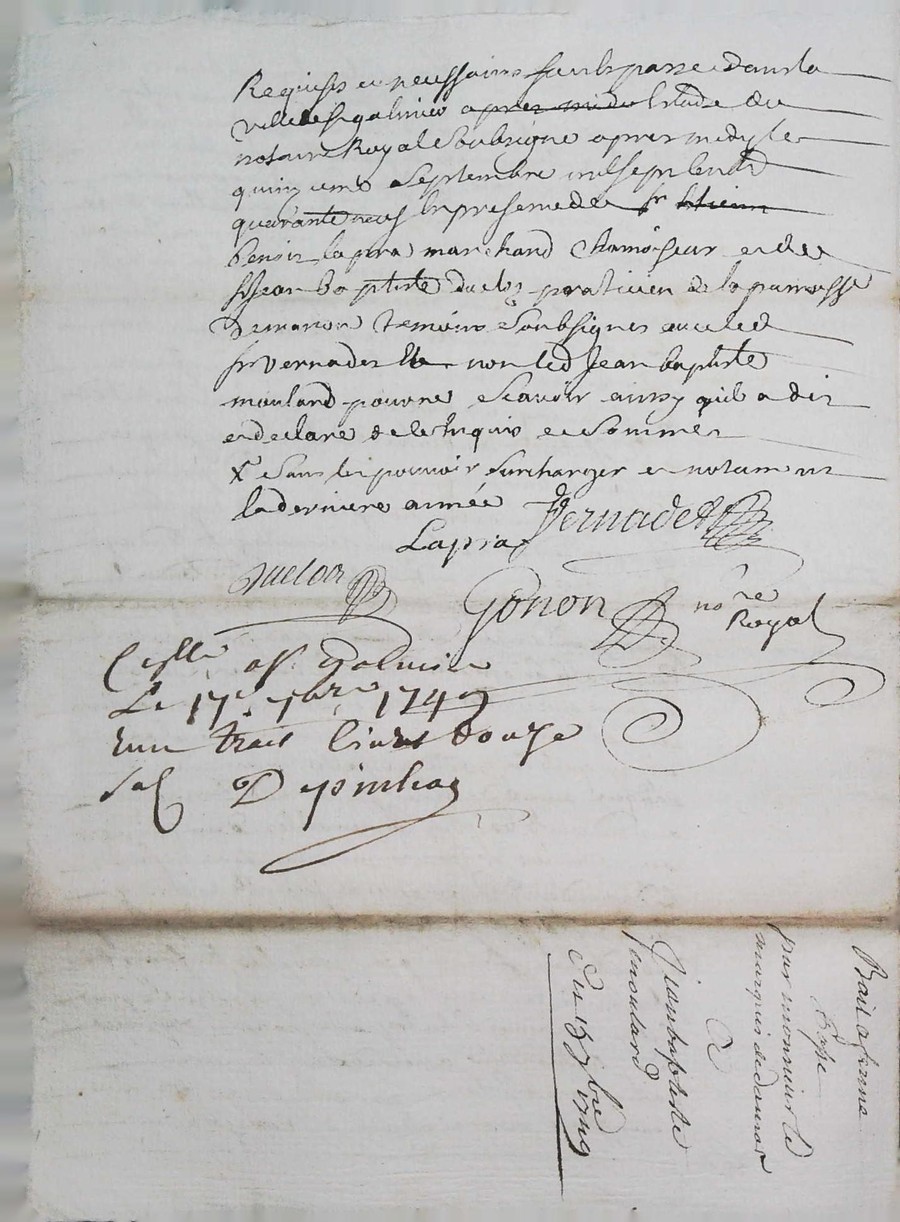 Requises et necessaires fait et passé dans la
ville de St galmier apres midi Etude du
notaire Royal Soubsigné apres midy le
quinzieme Septembre mil sept cend
quarante neuf En presence de sr
benoit lapra marchand Chamoiseur et de
sr Jean baptiste duclos praticien de la parroisse
de temoins Soubsignés avec led
sr vernadet non led Jean baptiste
moulard pour ne Scavoir ainsy qu'il a dit
et declaré de ce Enquis et Sommé
x Sans les pouvoir Surcharger et notamment
la derniere année Vernadet
Lapra
Duclos
Gonon no.re
Royal
Collé a St Galmier
Le 17e 7bre 1749
trois livres douze
sol Depinhac
Bail a ferme
passé
par monsieur le
marquis de
A
Jean baptiste
moulard
Du 15 7bre 1749